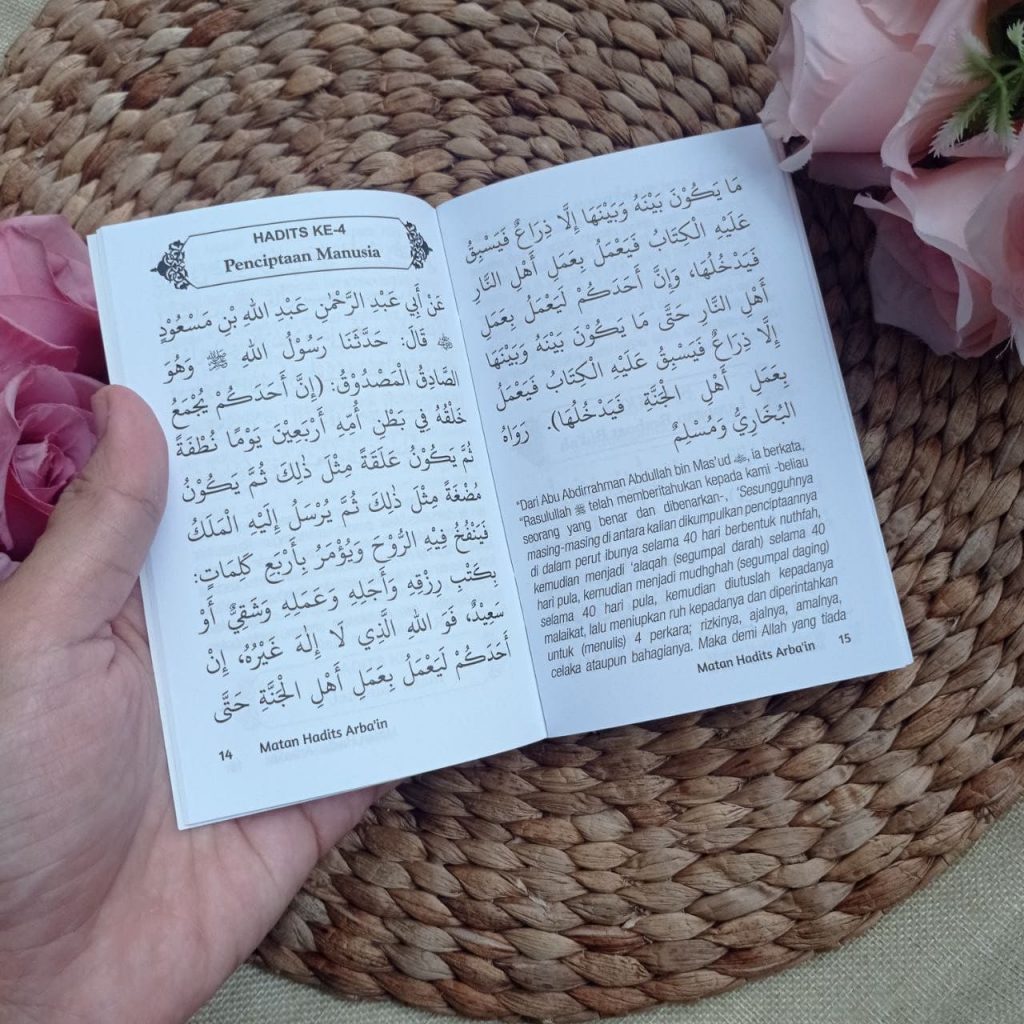 HADITS KE-4
Penciptaan Manusia
عَنْ أَبِي عَبْدِ الرَّحْمٰنِ عَبْدِ اللهِ بْنِ مَسْعُوْدٍ
قَالَ: حَدَّثَنَا رَسُوْلُ اللهِ ﷺ وَهُوَ
الصَّادِقُ الْمَصْدُوْقُ: (إِنَّ أَحَدَكُمْ يُجْمَعُ
خَلْقُهُ فِي بَطْنِ أُمِّهِ أَرْبَعِيْنَ يَوْمًا نُطْفَةً
ثُمَّ يَكُوْنُ عَلَقَةً مِثْلَ ذٰلِكَ ثُمَّ يَكُوْنُ
مُضْغَةً مِثْلَ ذٰلِكَ ثُمَّ يُرْسَلُ إِلَيْهِ الْمَلَكُ
فَيَنْفُخُ فِيهِ الرُّوْحَ وَيُؤْمَرُ بِأَرْبَعِ كَلِمَاتٍ:
بِكَتْبِ رِزْقِهِ وَأَجَلِهِ وَعَمَلِهِ وَشَقِيٌّ أَوْ
سَعِيْدٌ، فَوَ اللهِ الَّذِي لَا إِلٰهَ غَيْرُهُ، إِنْ
أَحَدَكُمْ لَيَعْمَلُ بِعَمَلِ أَهْلِ الْجَنَّةِ حَتَّى
14 Matan Hadits Arba'in
مَا يَكُوْنَ بَيْنَهُ وَبَيْنَهَا إِلَّا ذِرَاعٌ فَيَسْبِقُ
عَلَيْهِ الْكِتَابُ فَيَعْمَلُ بِعَمَلِ أَهْلِ النَّارِ
فَيَدْخُلُهَا، وَإِنَّ أَحَدَكُمْ لَيَعْمَلُ بِعَمَلِ
أَهْلِ النَّارِ حَتَّى مَا يَكُوْنَ بَيْنَهُ وَبَيْنَهَا
إِلَّا ذِرَاعٌ فَيَسْبِقُ عَلَيْهِ الْكِتَابُ فَيَعْمَلُ
بِعَمَلِ أَهْلِ الْجَنَّةِ فَيَدْخُلُهَا). رَوَاهُ
الْبُخَارِيُّ وَمُسْلِمٌ
"Dari Abu Abdirrahman Abdullah bin Mas'ud ﷺ, ia berkata,
"Rasulullah ﷺ telah memberitahukan kepada kami -beliau
seorang yang benar dan dibenarkan-, 'Sesungguhnya
masing-masing di antara kalian dikumpulkan penciptaannya
di dalam perut ibunya selama 40 hari berbentuk nuthfah,
kemudian menjadi 'alaqah (segumpal darah) selama 40
hari pula, kemudian menjadi mudhghah (segumpal daging)
selama 40 hari pula, kemudian diutuslah kepadanya
malaikat, lalu meniupkan ruh kepadanya dan diperintahkan
untuk (menulis) 4 perkara; rizkinya, ajalnya, amalnya,
celaka ataupun bahagianya. Maka demi Allah yang tiada
Matan Hadits Arba'in 15